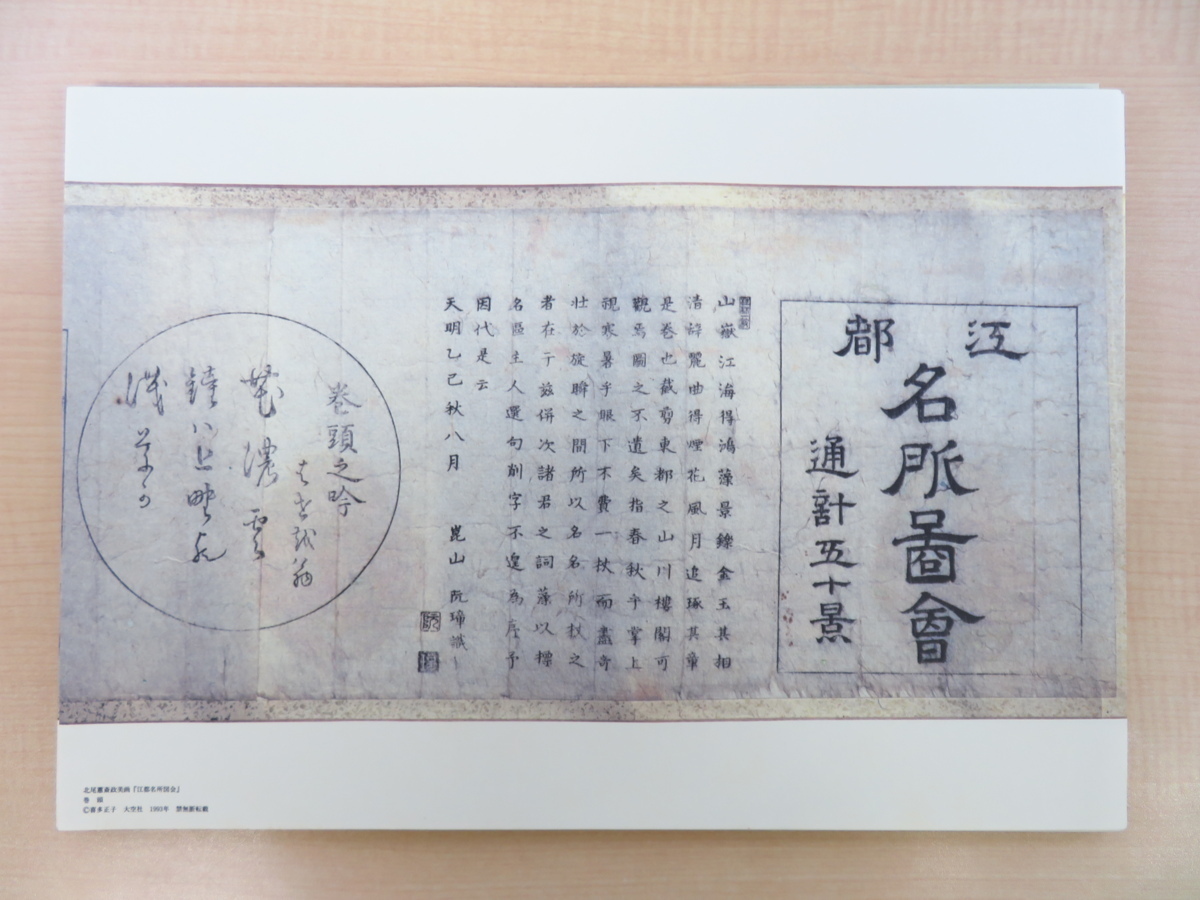 江都
名所圖會
通計五十景
山嶽江海得鴻藻景鑠金玉其相
清詞麗曲得煙花風月追琢其章
是卷也裁剪東都之山川樓閣可
觀焉圖之不遺矣指春秋乎掌上
視寒暑乎眼下不費一杖而盡奇
壯於旋瞬之間所以名名所以之
者在于茲併次諸君之詞藻以標
名區主人選句削字不遑為序予
因代是云
天明乙巳秋八月 崑山 阮瑋識
卷頭之吟
はせを翁
花濃雲
鐘八上野可
淺草か
北尾蕙斎政美画『江都名所図会』
巻頭
©喜多正子 大空社 1993年 禁無断転載